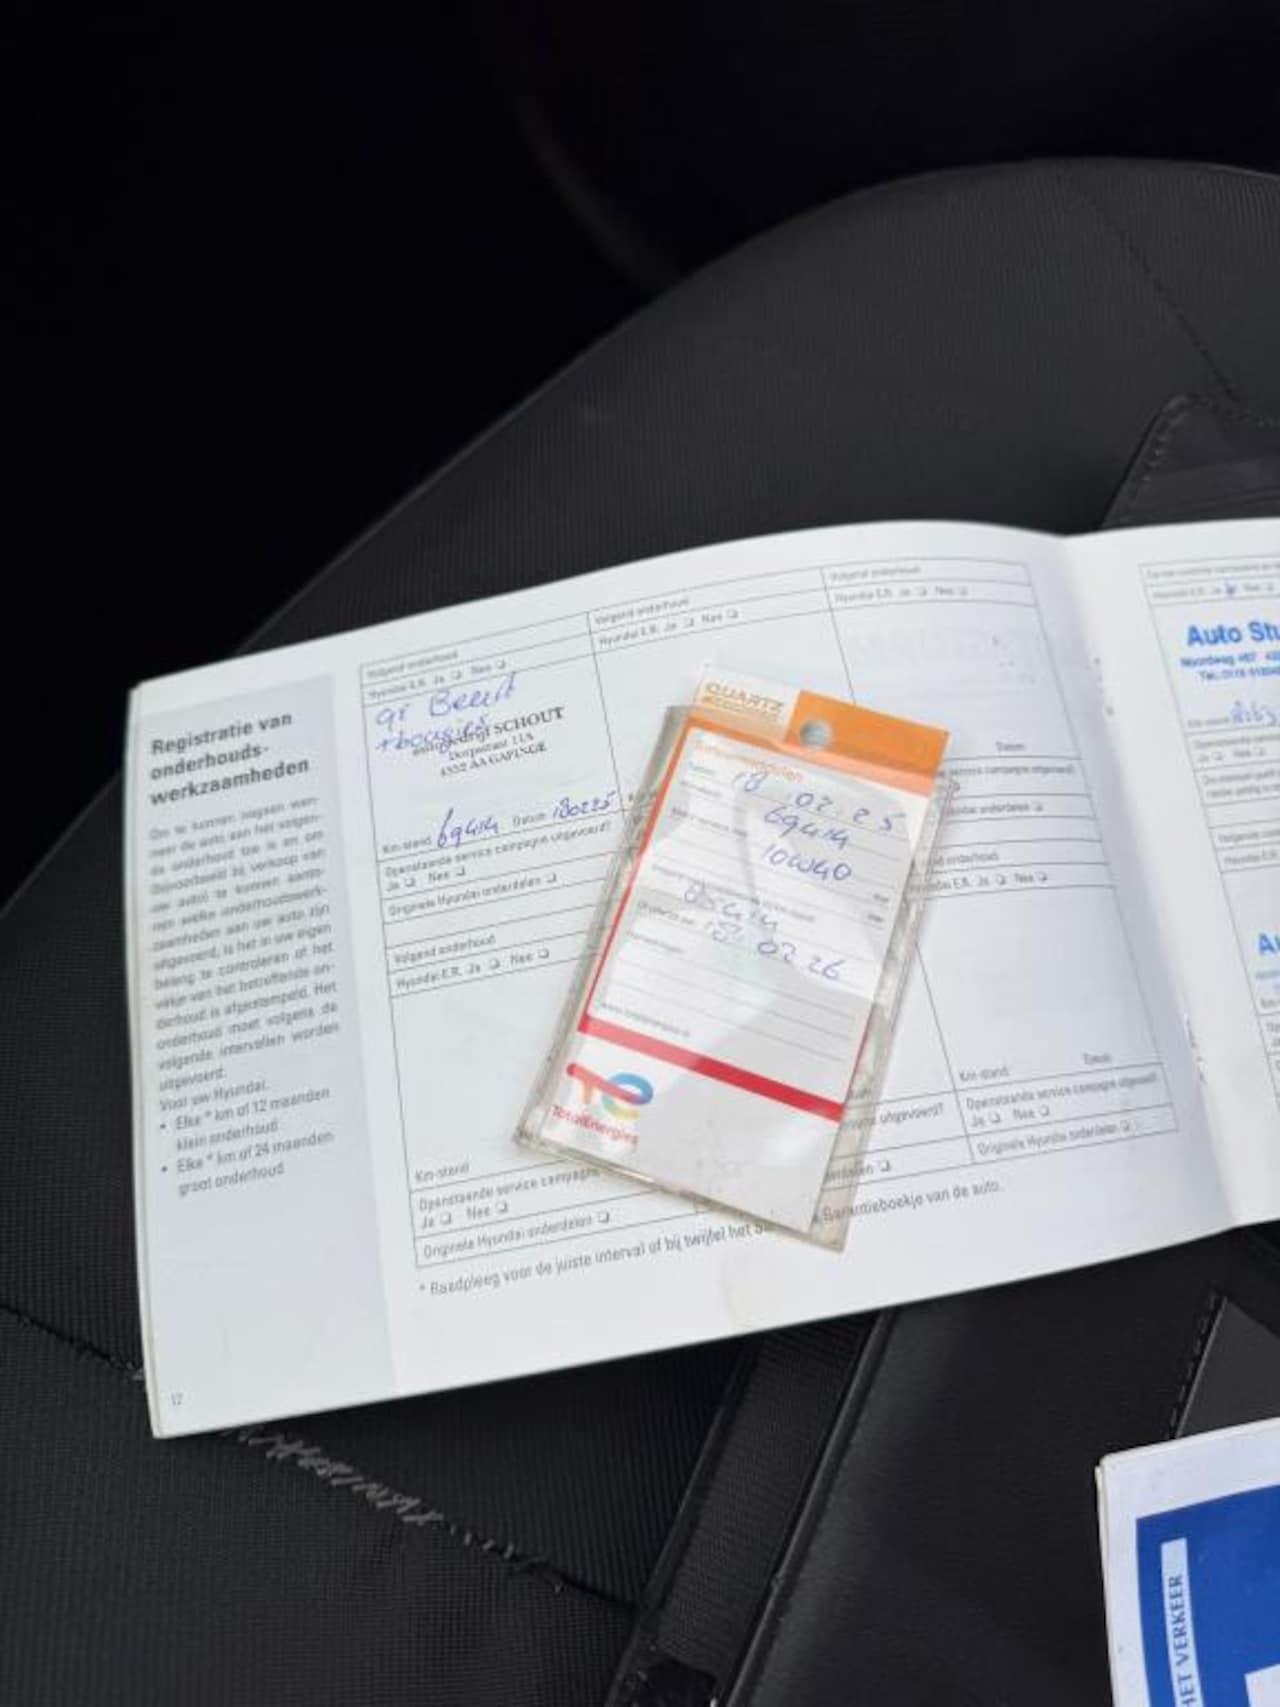 Registratie van
onderhouds-
werkzaamheden
Om te kunnen nagaan wan-
neer de auto aan het volgen-
de onderhoud toe is en om
(bijvoorbeeld bij verkoop van
uw auto) te kunnen aanto-
nen welke onderhoudswerk-
zaamheden aan uw auto zijn
uitgevoerd, is het in uw eigen
belang te controleren of het
vakje van het betreffende on-
derhoud is afgestempeld. Het
onderhoud moet volgens de
volgende intervallen worden
uitgevoerd.
Voor uw Hyundai.
• Elke * km of 12 maanden
klein onderhoud
• Elke * km of 24 maanden
groot onderhoud
12
Volgend onderhoud
Hyundai E.R. Ja ❏ Nee ❏
gr Beurt
+ bougies
SCHOUT
Dorpsstraat 11A
4352 AA GAPINGE
Km-stand 69414 Datum 180225
Openstaande service campagne uitgevoerd?
Ja ❏ Nee ❏
Originele Hyundai onderdelen ❏
Volgend onderhoud
Hyundai E.R. Ja ❏ Nee ❏
Km-stand
Openstaande service campagne
Ja ❏ Nee ❏
Originele Hyundai onderdelen ❏
Volgend onderhoud
Hyundai E.R. Ja ❏ Nee ❏
Volgend onderhoud
Hyundai E.R. Ja ❏ Nee ❏
Datum
service campagne uitgevoerd?
onderdelen ❏
onderhoud
E.R. Ja ❏ Nee ❏
Km-stand Datum
uitgevoerd?
Openstaande service campagne uitgevoerd?
Ja ❏ Nee ❏
Originele Hyundai onderdelen ❏
* Raadpleeg voor de juiste interval of bij twijfel het
Garantieboekje van de auto.
QUARTZ
18.02.25
69414
10W40
18.02.26
TotalEnergies
Auto
Noordweg
HET VERKEER